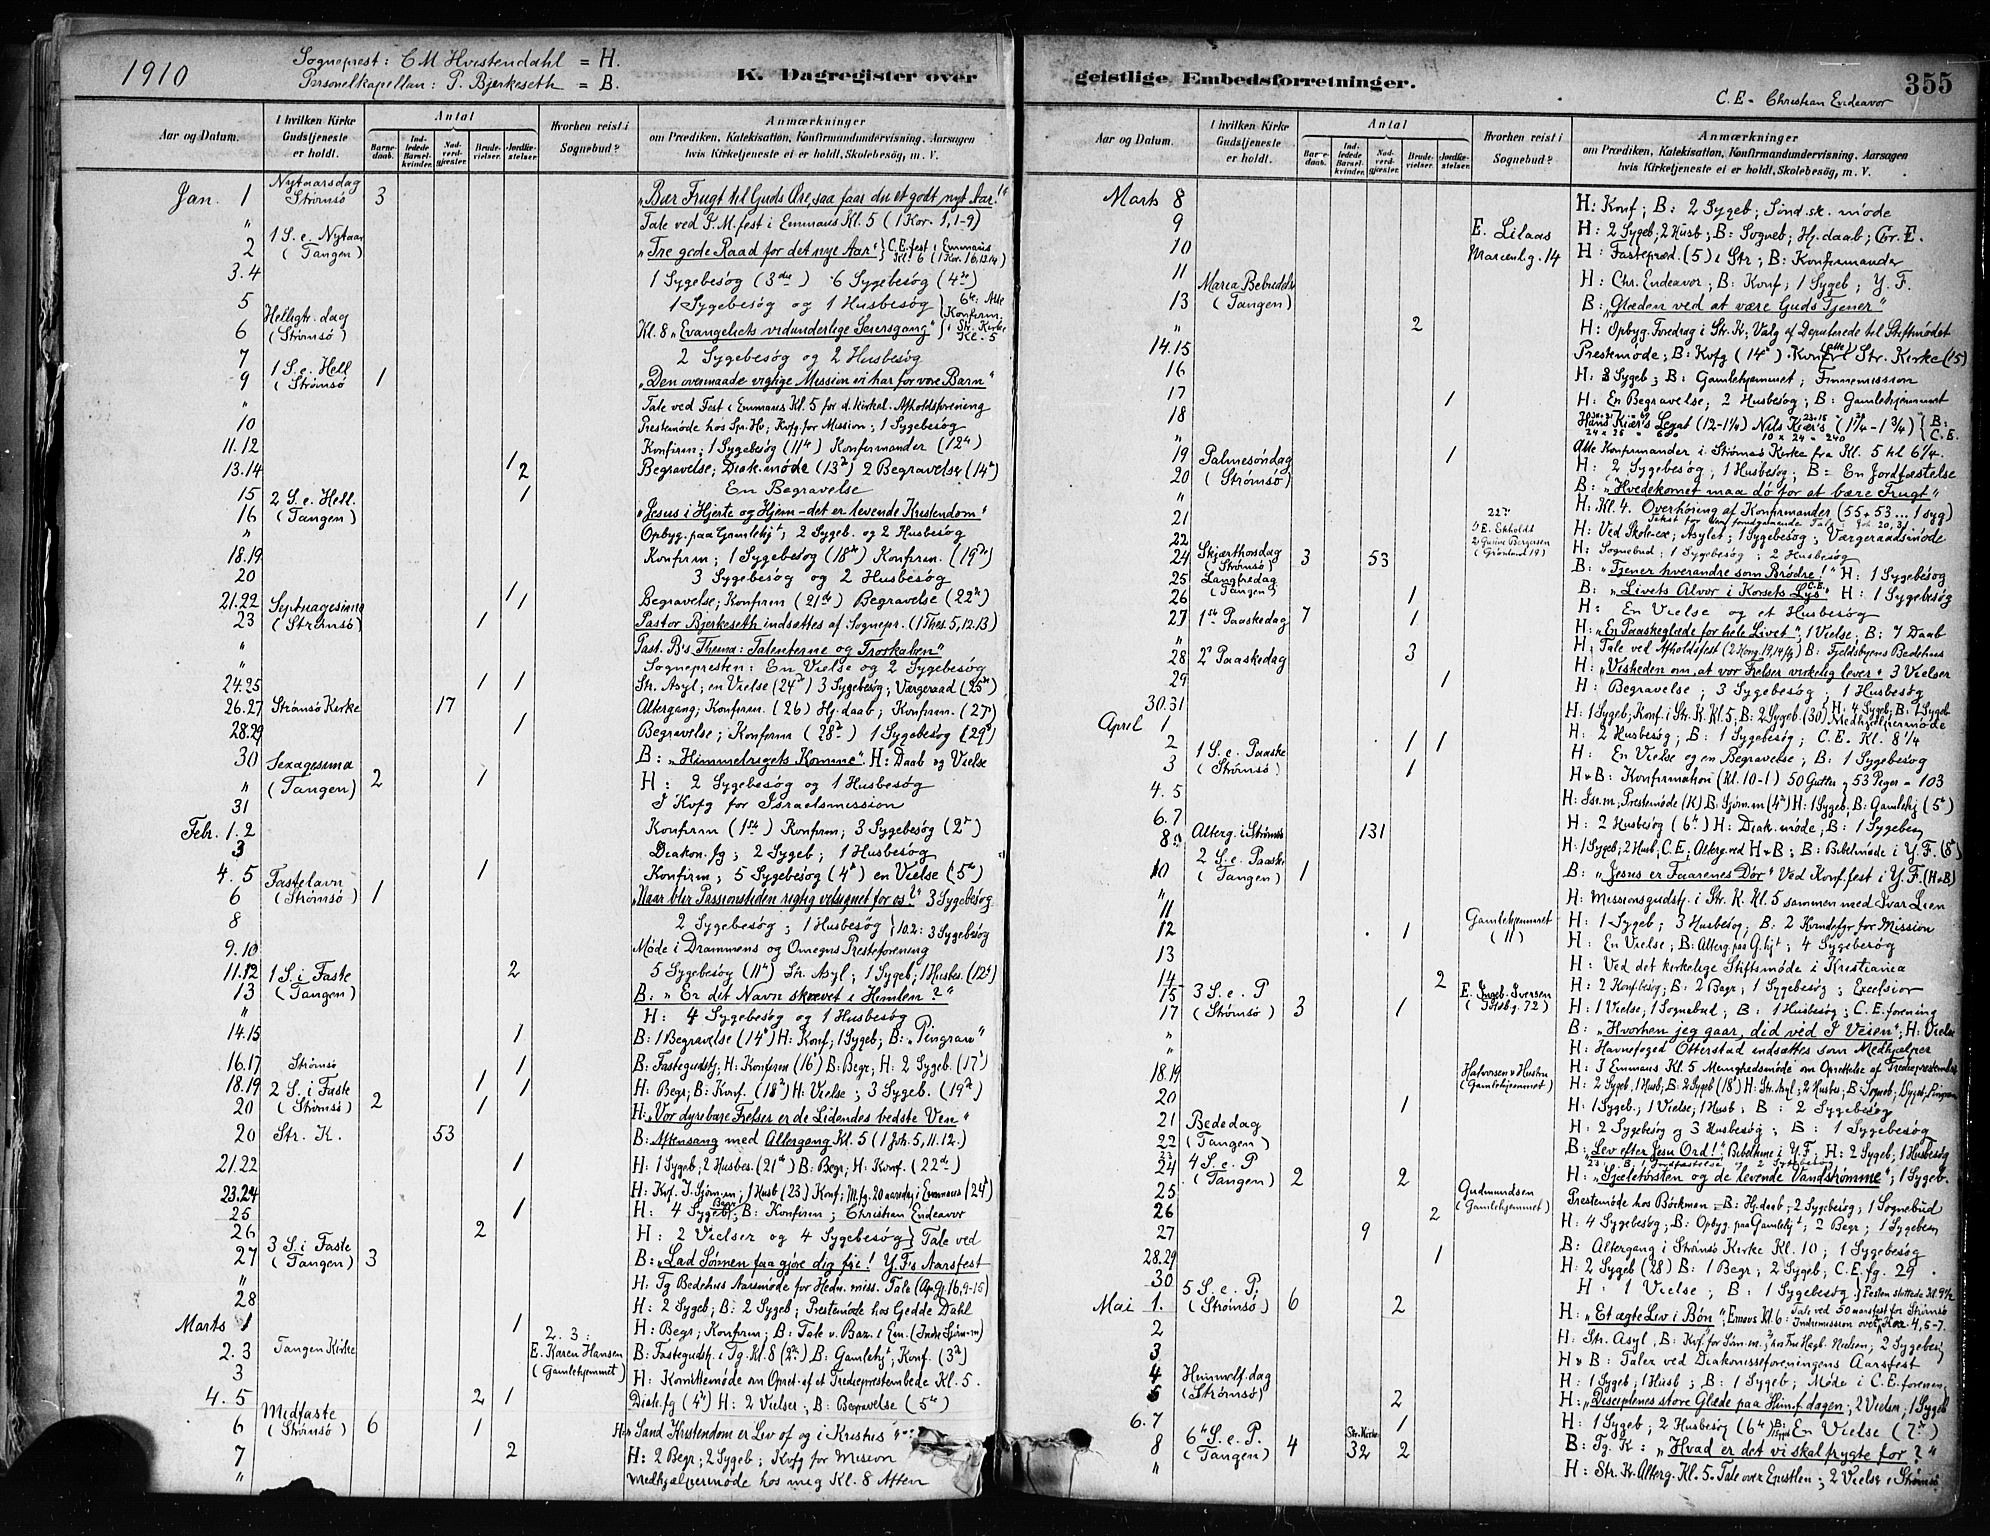 1910
Sogneprest: C M Hvistendahl = H.
Personelkapellan: P. Bjerkeseth = B.
K. Dagregister over
Aar og Datum.
I hvilken Kirke Gudstjeneste er holdt.
Antal
Barnedaab.
Indledede Barselkvinder.
Nadverdgjester.
Brudevielser.
Jordfæstelser.
Hvorhen reist i Sognebud?
Anmærkninger
om Prædiken, Katekisation, Konfirmandundervisning. Aarsagen
hvis Kirketjeneste ei er holdt, Skolebesøg, m. V.
Jan. 1 Nytaarsdag Strømsø 3 „Bær Frugt til Guds Ære, saa faar du et godt nyt Aar!"
" Tale ved I. M. fest i Emmaus Kl. 5 (1 Kor. 1, 1-9)
2 1 S. e. Nytaar (Tangen) „Tre gode Raad for det nye Aar" } C.E. fest i Emmaus Kl. 6 (1 Kor. 16, 13.14)
3.4 1 Sygebesøg (3die) 6 Sygebesøg (4de)
5 1 Sygebesøg og 1 Husbesøg } 6te: Alle Konfirm. i Str. Kirke Kl. 5
6 Helligtr. dag (Strømsø) Kl. 8 „Evangeliets vidunderlige Seiersgang"
7 2 Sygebesøg og 2 Husbesøg
9 1 S. e. Hell (Strømsø 1 „Den overmaade vigtige Mission vi har for vore Barn"
" Tale ved Fest i Emmaus Kl. 5 for d. kirkel. Afholdsforening
10 Prestemøde hos Spr. Ho; Kvfg. for Mission; 1 Sygebesøg
11.12 Konfirm; 1 Sygebesøg (11te) Konfirmander (12te)
13.14 1 2 Begravelse; Diak. møde (13de) 2 Begravelser (14de)
15 1 En Begravelse
16 2 S. e. Hell. (Tangen) „Jesus i Hjerte og Hjem – det er levende Kristendom"
" Opbyg. paa Gamlehjt, 2 Sygeb. og 2 Husbesøg
18.19 Konfirm; 1 Sygebesøg (18de) Konfirm. (19de)
20 3 Sygebesøg og 2 Husbesøg
21.22 1 1 Begravelse; Konfirm (21de) Begravelse (22de)
23 Septuagesima (Strømsø) 1 Pastor Bjerkeseth indsættes af Sognepr. (1 Thes. 5, 12.13)
" Past. B's Thema: Talenterne og Troskaben"
" Sognepresten: En Vielse og 2 Sygebesøg
24.25 1 1 Str. Asyl; en Vielse (24de) 3 Sygebesøg; Værgeraad (25de)
26.27 Strømsø Kirke 17 Altergang; Konfirm. (26) Hj. daab; Konfirm. (27de)
28.29 1 Begravelse; Konfirm (28de) 1 Sygebesøg (29de)
30 Sexagesima (Tangen) 2 1 B: „Himmelrigets Komme". H: Daab og Vielse
" H: 2 Sygebesøg og 1 Husbesøg
31 I Kvfg for Israelsmission
Febr. 1.2 Konfirm (1ste) Konfirm; 3 Sygebesøg (2den)
3 Diakon. fg; 2 Sygeb; 1 Husbesøg
4. 5 1 Konfirm; 5 Sygebesøg (4de) en Vielse (5te)
6 Fastelavn (Strømsø) 1 „Naar blir Passionstiden rigtig velsignet for os?" 3 Sygebesøg
8 2 Sygebesøg; 1 Husbesøg } 10.2: 3 Sygebesøg
9.10 Møde i Drammens og Omegns Presteforening
11.12 2 5 Sygebesøg (11te) Str. Asyl; 1 Sygeb; 1 Husbes. (12te)
13 1 S. i Faste (Tangen) B: „Er det Navn skrevet i Himlen?"
" H: 4 Sygebesøg og 1 Husbesøg
14.15 1 B: 1 Begravelse (14de) H: Konf; 1 Sygeb; B: „Pingraw"
16.17 Strømsø 1 B: Fastegudstj; H: Konfirm (16de) B: Begr; H: 2 Sygeb. (17de)
18.19 1 1 H: Begr; B: Konf. (18de) H: Vielse; 3 Sygeb. (19de)
20 2 S. i Faste (Strømsø) 2 1 H: „Vor dyrebare Frelser er de Lidendes bedste Ven"
20 Str. K. 53 B: Aftensang med Altergang Kl. 5 (1 Joh. 5, 11.12.)
21.22 1 H: 1 Sygeb; 2 Husbes. (21de) B: Begr; H: Konf. (22de)
23.24 H: Kvf. I. Sjøm. m; 1 Husb (23) Konf; M. fg. 20 aarsdag i Emmaus (24de)
25 1 H: 4 Sygeb; Begr; B: Konfirm; Christian Endeavor
26 2 H: 2 Vielser og 4 Sygebesøg } Tale ved
27 3 S. i Faste (Tangen) 3 B: „Lad Sønnen faa gjøre dig fri! Y. F's Aarsfest
" H: Tg Bedehus Aarsmøde for Hedn. miss. Tale (Ap. Gj. 16, 9-15)
28 H: 2 Sygeb; B: 2 Sygeb; Prestemøde hos Gedde Dahl
Marts 1 1 H: Begr; Konfirm; B: Tale v. Baz. i Em. (Indre Sjøm-m)
2. 3 Tangen Kirke 2. 3: E. Karen Hansen (Gamlehjemmet) B: Fastegudstj. i Tg. Kl. 8 (2den) B: Gamlehjt; Konf. (3die)
3 H: Komittemøde om Opret. af et Tredieprestembede Kl. 5.
4. 5 2 1 Diak. fg (4de) H: 2 Vielser; B: Begravelse (5te)
6 Midfaste (Strømsø) 6 1 H: „Sand Kristendom er Liv af og i Kristus"
7 2 H: 2 Begr; 2 Sygeb; Kvfg for Mission
" Medhjælpermøde hos mig Kl. 8 Aften
geistlige Embedsforretninger.
355
C. E = Christian Endeavor
Aar og Datum.
I hvilken Kirke Gudstjeneste er holdt.
Antal
Barnedaab.
Indledede Barselkvinder.
Nadverdgjester.
Brudevielser.
Jordfæstelser.
Hvorhen reist i Sognebud?
Anmærkninger
om Prædiken, Katekisation, Konfirmandundervisning. Aarsagen
hvis Kirketjeneste ei er holdt, Skolebesøg, m. V.
Marts 8 H: Konf; B: 2 Sygeb; Sind. sk. møde
9 E. Lilaas H: 2 Sygeb; 2 Husb; B: Sogneb; Hj. daab; Chr. E.
10 Marienlg. 14 H: Fastepræd. (5) i Str; B: Konfirmander
11 H: Chr. Endeavor; B: Konf; 1 Sygeb; Y. F.
13 Maria Bebudels (Tangen) B: „Glæden ved at være Guds Tjener"
" 2 H: Opbyg. Foredrag i Str. K; Valg af Deputerede til Stiftmødet
14.15 Prestemøde; B: Kvfg (14de). Konf. (alle) i Str. Kirke (15)
16 H: 3 Sygeb; B: Gamlehjemmet; Finnemission
17 1 H: En Begravelse; 2 Husbesøg; B: Gamlehjemmet
18 Hans Kiær's Legat (12-1¼) Nils Kiær's (1¼-1¾) } B: C.E.
" Alle Konfirmander i Strømsø Kirke fra Kl. 5 til 6¼.
19 1 H: 2 Sygebesøg; 1 Husbesøg; B: En Jordfæstelse
20 Palmesøndag (Strømsø) B: „Hvedekornet maa dø for at bære Frugt"
" H: Kl. 4. Overhøring af Konfirmander (55+53... 1 syg)
21 H: Ved Skole-ex; Asylet; 1 Sygebesøg; Værgeraadsmøde
22 22de 1/ E. Ekholdt 2/ Gurine Bergersen (Grønland 19) H: Sognebud; 1 Sygebesøg; 2 Husbesøg
24 Skjærthorsdag (Strømsø) 3 53 B: „Tjener hverandre som Brødre!" H: 1 Sygebesøg
25 Langfredag (Tangen) B: „Livets Alvor i Korsets Lys" C.E. H: 1 Sygebesøg
26 1 H: En Vielse og et Husbesøg
27 1ste Paaskedag 7 1 H: „En Paaskeglæde for hele Livet"; 1 Vielse; B: 7 Daab
" H: Tale ved Afholdsfest (2 Kong. 19, 14 fg) B: Fjeldsbyens Bedehus
28 2den Paaskedag 3 H: „Visheden om, at vor Frelser virkelig lever" 3 Vielser
29 1 H: Begravelse; 3 Sygebesøg; 1 Husbesøg
30.31 H: 1 Sygeb; Konf. i Str. K. Kl. 5; B: 2 Sygeb. (30) H: 4 Sygeb; B: 1 Sygeb Medhjælpermøde
April 1 H: 2 Husbesøg; B: 1 Sygebesøg; C.E. Kl. 8¼
2 1 1 H: En Vielse og en Begravelse; B: 1 Sygebesøg
3 1 S. e. Paaske (Strømsø) 1 H & B: Konfirmation (Kl. 10-1) 50 Gutter og 53 Piger = 103
4. 5 H: Isr. m; Prestemøde (K) B: Sjøm. m (4de) H: 1 Sygeb; B: Gamlehj (5te)
6. 7 H: 2 Husbesøg (6te) H: Diak. møde; B: 1 Sygebes
8 9 Alterg. i Strømsø 131 H: 1 Sygeb; 2 Husb; C.E; Alterg. ved H & B; B: Bibelmøde i Y. F. (8de)
10 2 S. e. Paaske (Tangen) 1 B: „Jesus er Faarenes Dør" Ved Konf. fest i Y. F. (H & B)
" H: Missionsgudstj. i Str. K. Kl. 5 sammen med Ivar Lien
11 Gamlehjemmet (11) H: 1 Sygeb; 3 Husbesøg; B: 2 Kvindefgr for Mission
12 1 H: En Vielse; B: Alterg. paa G. hjt; 4 Sygebesøg
13 H: Ved det kirkelige Stiftsmøde i Kristiania
14 2 H: 2 Konf. besøg; B: 2 Begr; 1 Sygebesøg; Excelsior
15 E. Ingeb. Iversen (Toldbg. 72) H: 1 Vielse; 1 Sognebud; B: 1 Husbesøg; C.E. forening
17 3 S. e. P (Strømsø) 3 1 B: „Hvorhen jeg gaar, did ved I Veien"; H: Vielse
" H: Havnefoged Otterstad indsættes som Medhjælper
" H: I Emmaus Kl. 5 Menighedsmøde om Oprettelse af Tredieprestembede
18.19 Halvorsen & Hustru (Gamlehjemmet) H: 2 Sygeb, 1 Husb; B: 2 Sygeb (18de) H: Str. Asyl; 2 Husbes; B: Sogneb; 1 Sygeb; Pingraw
20 1 H: 1 Sygeb.; 1 Vielse; 1 Husb; B: 2 Sygebesøg
21 H: 2 Sygebesøg og 3 Husbesøg; B: 1 Sygebesøg
22 Bededag (Tangen) B: „Lev efter Jesu Ord!"; Bibeltime i Y. F; H: 2 Sygeb; 1 Husbesøg
23 B: 1 Jordfæstelse og 2 Sygebesøg
24 4 S. e. P (Tangen) 2 2 H: „Sjæletørsten og de levende Vandstrømme"; 1 Sygeb.
25 Gudmundsen (Gamlehjemmet) Prestemøde hos Böckman = B: Hj. daab; 2 Sygebesøg; 1 Sognebud
26 2 H: 4 Sygebesøg; B: Opbyg. paa Gamlehjt; 2 Begr; 1 Sygebesøg
27 9 B: Altergang i Strømsø Kirke Kl. 10; 1 Sygebesøg
28.29 1 H: 2 Sygeb (28) B: 1 Begr; 2 Sygeb; C.E. fg. 29.
30 H: 1 Vielse; B: 1 Sygebesøg } Festen sluttede Kl. 9½
Mai 1. 5 S. e. P. (Strømsø) 6 2 H: „Et ægte Liv i Bøn"; Emaus Kl. 6: Tale ved 50 aarsfest for Strømsø Indremission over 2 Kor. 4, 5-7.
2 H: Str. Asyl, B: Kvf. for Sjøm. m. 3/ hos Fru Hagb. Nielsen; 2 Sygebesøg
3 H & B: Taler ved Diakonisseforeningens Aarsfest
4 H: 1 Sygeb; 1 Husb; B: 1 Sygeb; Møde i C.E. forenen.
5 Himmelf. dag (Strømsø) 2 H: „Disciplenes store Glæde paa Himf. dagen; 2 Vielser, 1 Sygeb
6. 7 1 H: 1 Sygeb; 2 Husbesøg (6te) En Vielse (7de)
8 6te S. e. P. (Tangen) 4 Str. Kirke 32 2 B: Tg. K: „Hvad er det vi skal frygte for?"
" H: Str. K. Alterg. Kl. 5. Tale over Epistlen; 2 Vielse i Strømsø